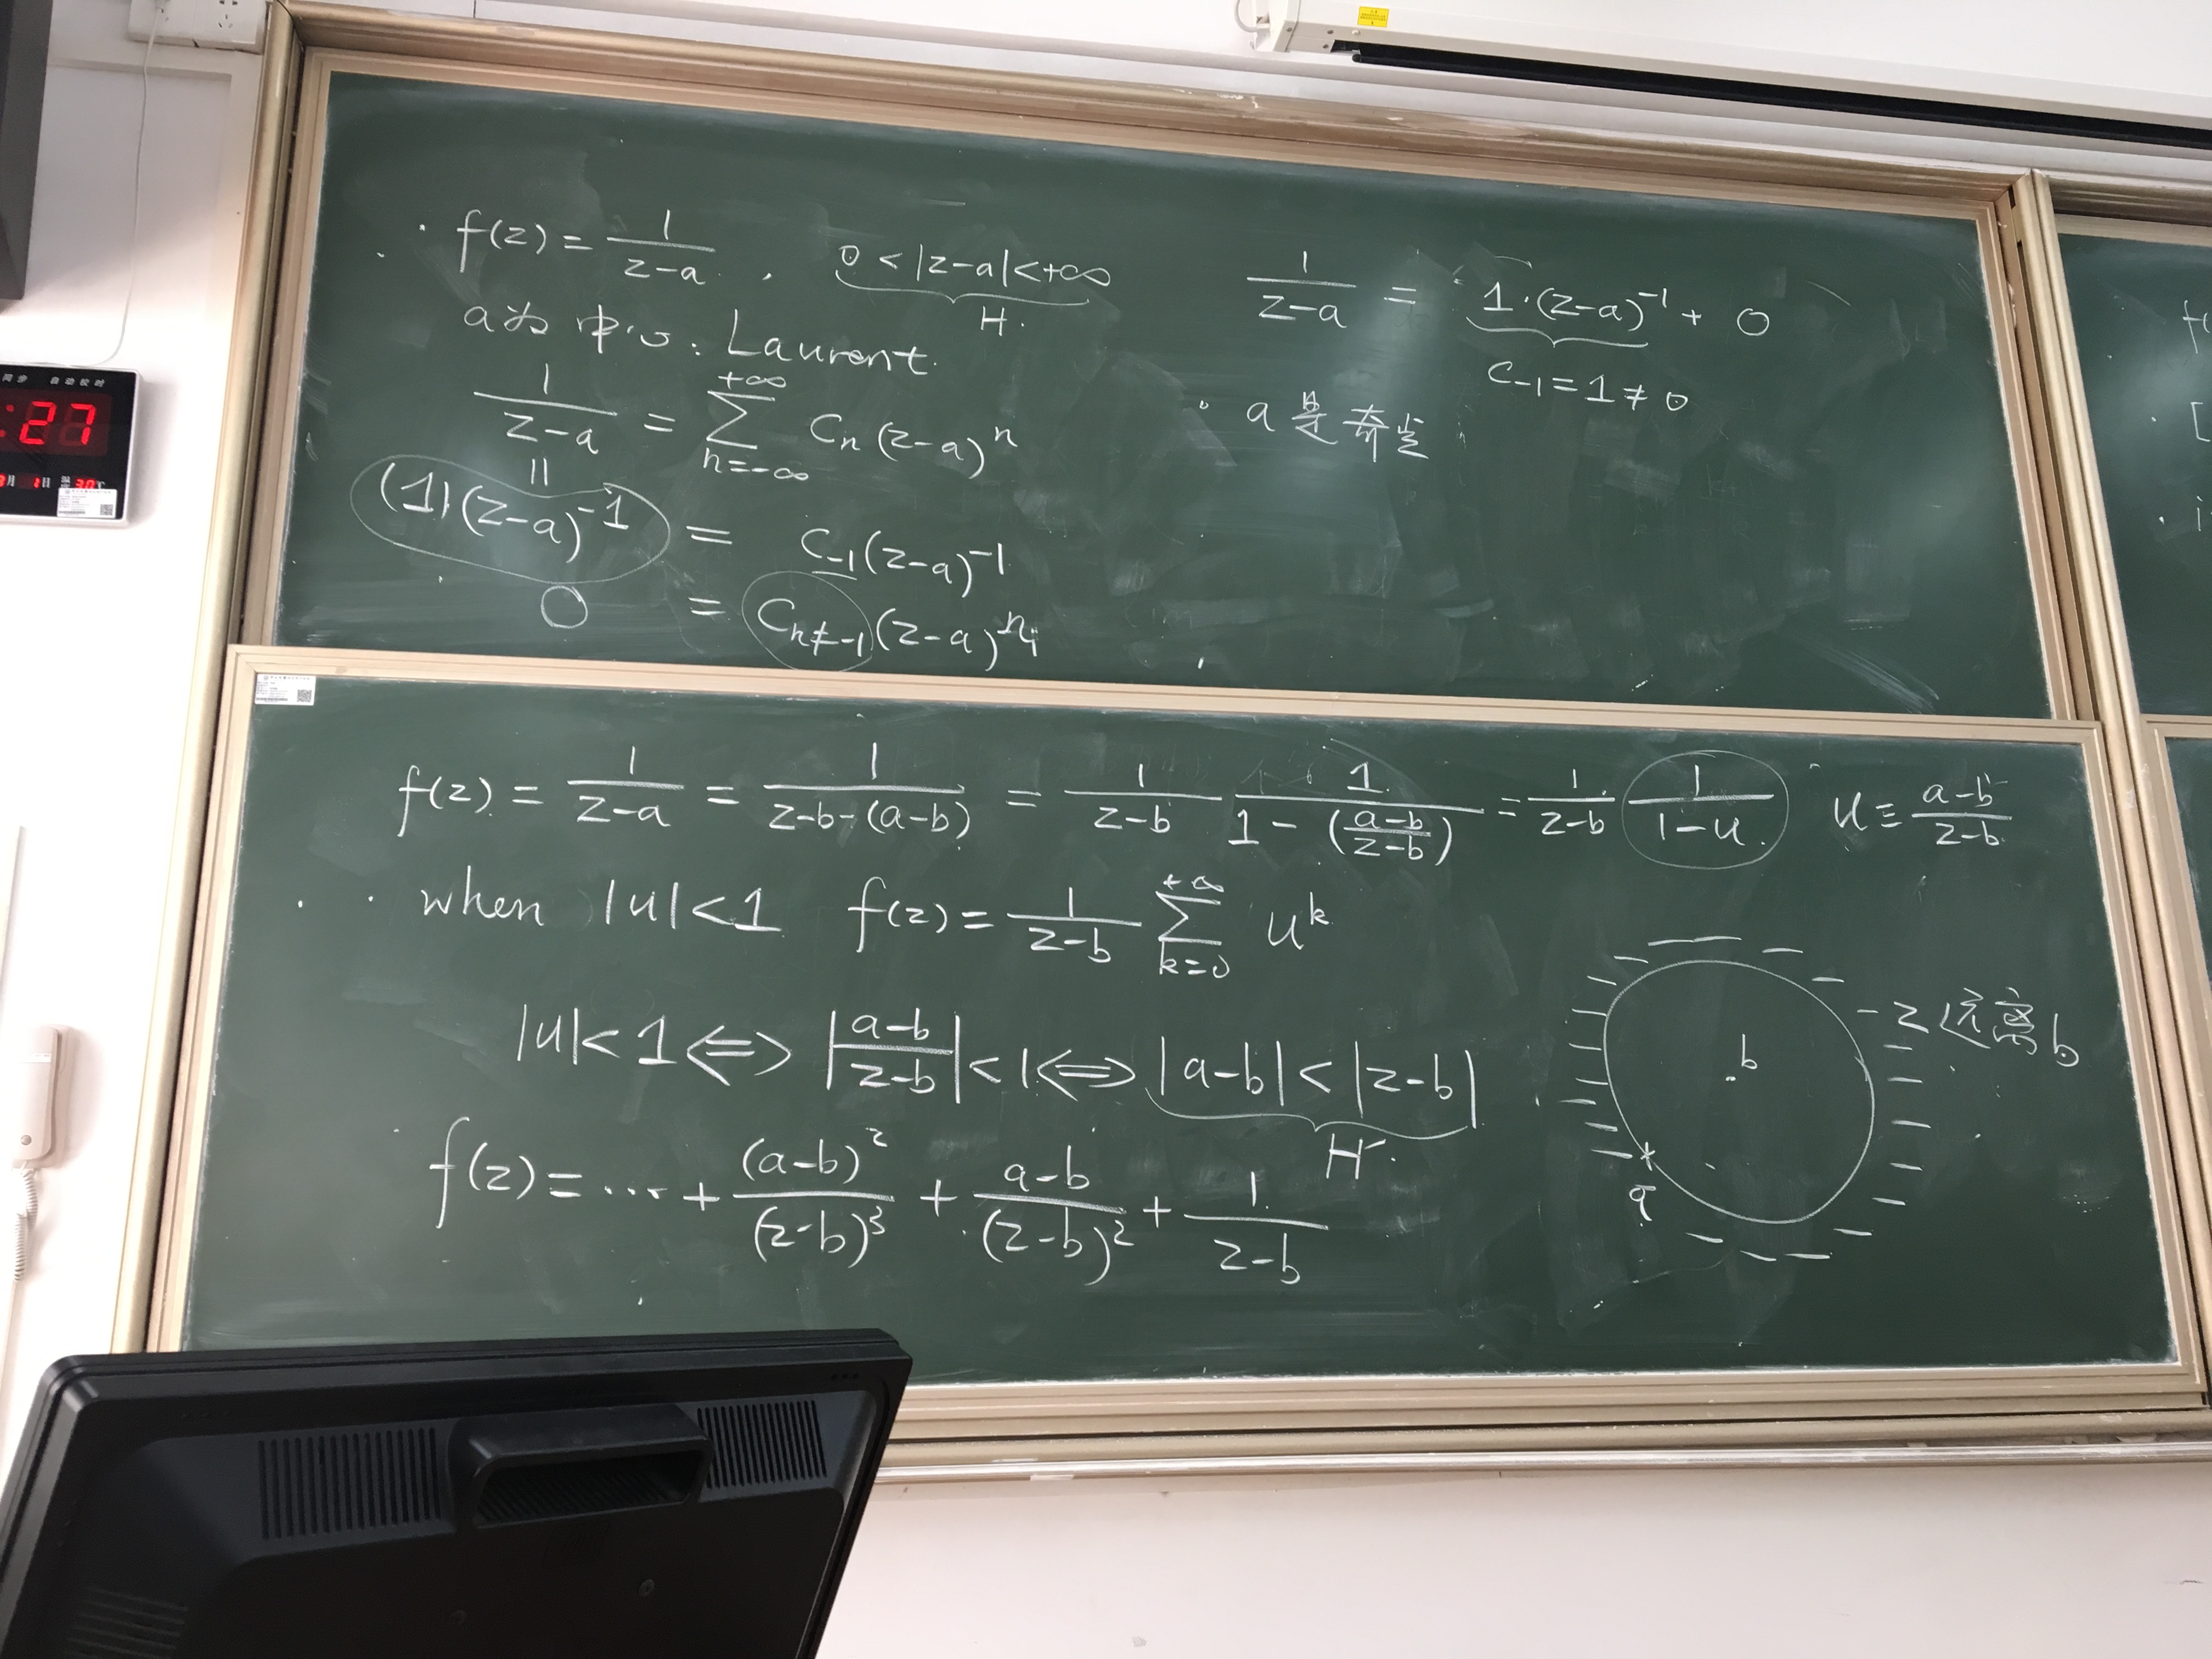 f(z) = 1/(z-a) , 0 < |z-a| < +∞
H.
a为中心: Laurent.
1/(z-a) = ∑_{n=-∞}^{+∞} C_n (z-a)^n
||
(1)(z-a)^{-1} = C_{-1}(z-a)^{-1}
0 = C_{n≠-1}(z-a)^n
1/(z-a) = 1·(z-a)^{-1} + 0
C_{-1} = 1 ≠ 0
a 是奇点
f(z) = 1/(z-a) = 1/(z-b-(a-b)) = 1/(z-b) 1/(1-((a-b)/(z-b))) = 1/(z-b) 1/(1-u) u ≡ (a-b)/(z-b)
when |u|<1 f(z) = 1/(z-b) ∑_{k=0}^{+∞} u^k
|u|<1 ⇔ |(a-b)/(z-b)| < 1 ⇔ |a-b| < |z-b|
H.
f(z) = ··· + (a-b)^2/(z-b)^3 + (a-b)/(z-b)^2 + 1/(z-b)
b
z 远离b
a
:27
同步 自动校时
月 1日 温度 30℃